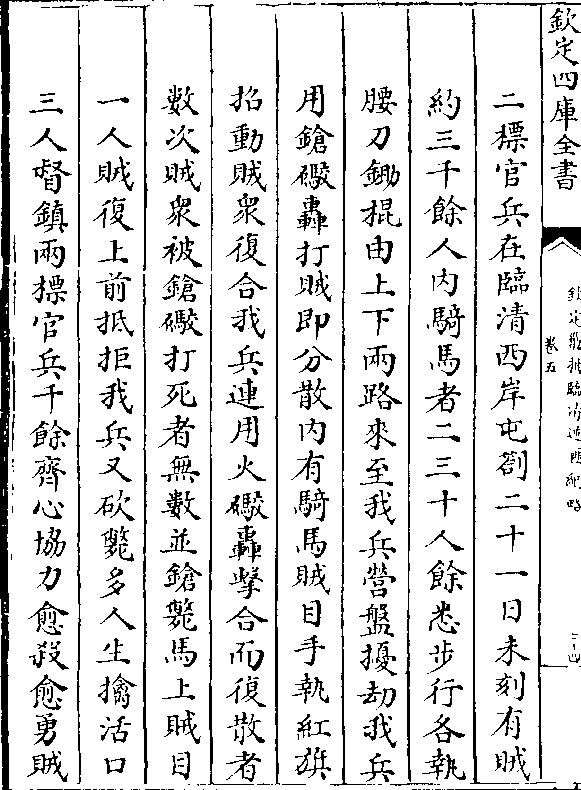 欽定四庫全書
欽定剿捕臨清逆匪紀略
卷五
二標官兵在臨清西岸屯劄二十一日未刻有賊
約三千餘人內騎馬者二三十人餘悉步行各執
腰刀鋤棍由上下兩路來至我兵營盤擾刦我兵
用鎗礮轟打賊即分散內有騎馬賊目手執紅旗
招動賊衆復合我兵連用火礮轟擊合而復散者
數次賊衆被鎗礮打死者無數並鎗斃馬上賊目
一人賊復上前抵拒我兵又砍斃多人生擒活口
三人督鎮兩標官兵千餘齊心協力愈殺愈勇賊